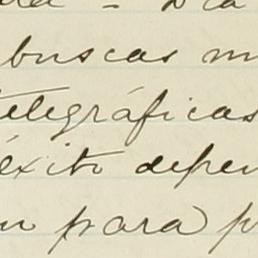 buscas
telegráficas
éxito depen
para p